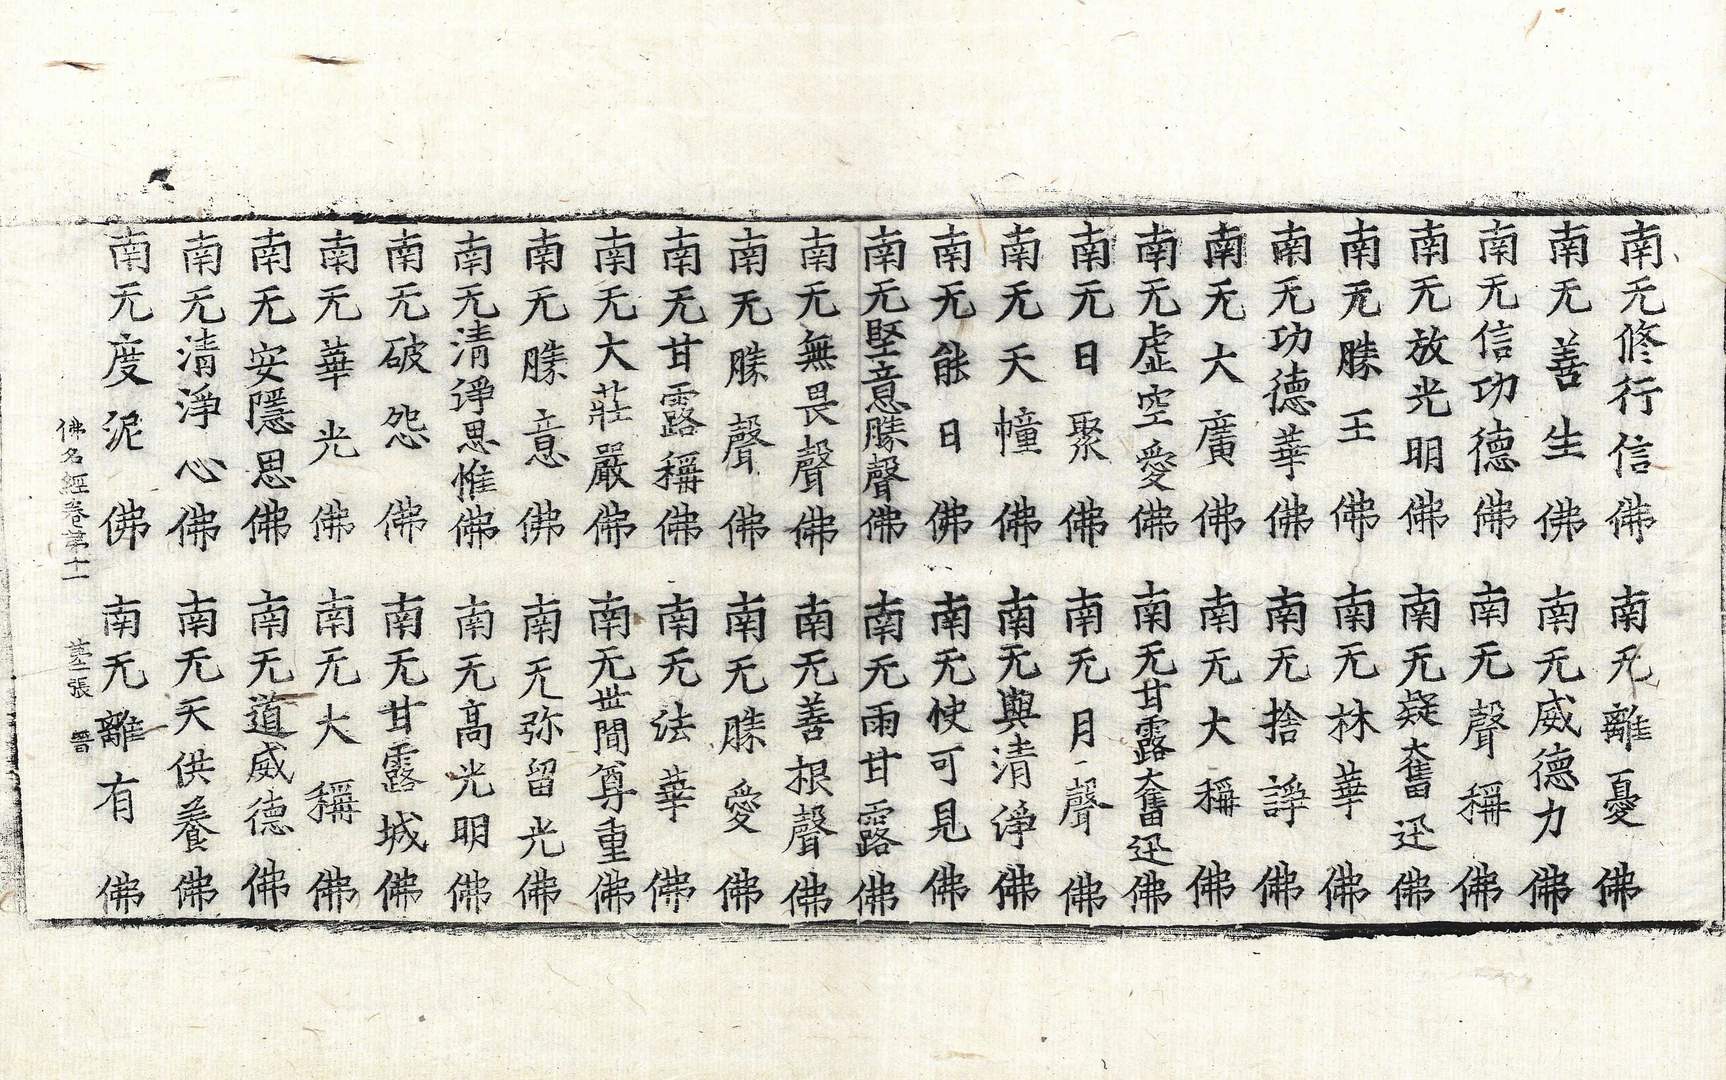 南无修行信佛 南无離憂佛
南无善生佛 南无威德力佛
南无信功德佛 南无聲稱佛
南无放光明佛 南无疑奮迅佛
南无勝王佛 南无林華佛
南无功德華佛 南无捨諍佛
南无大廣佛 南无大稱佛
南无虛空愛佛 南无甘露奮迅佛
南无日聚佛 南无月聲佛
南无天幢佛 南无與清淨佛
南无能日佛 南无快可見佛
南无堅意勝聲佛 南无雨甘露佛
南无無畏聲佛 南无善根聲佛
南无勝聲佛 南无勝愛佛
南无甘露稱佛 南无法華佛
南无大莊嚴佛 南无世間尊重佛
南无勝意佛 南无弥留光佛
南无清淨思惟佛 南无高光明佛
南无破怨佛 南无甘露城佛
南无華光佛 南无大稱佛
南无安隱恩佛 南无道威德佛
南无清淨心佛 南无天供養佛
南无度泥佛 南无離有佛
佛名經卷第十一 張